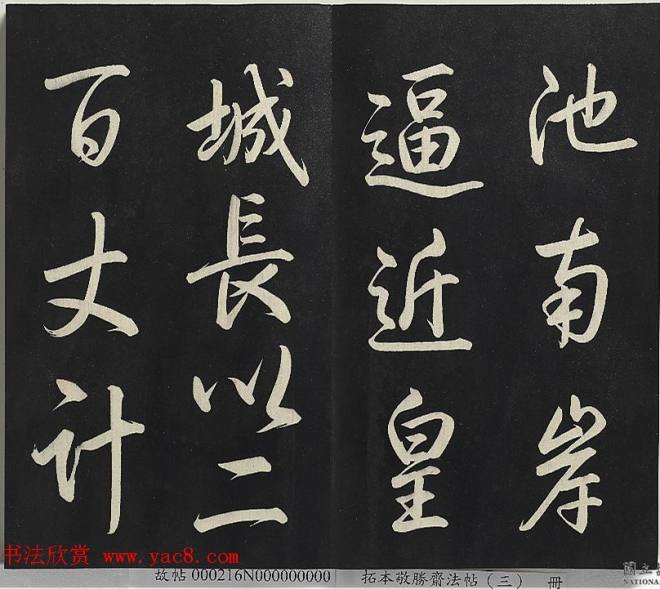 池南岸
逼近皇
城長以二
百丈计
书法欣赏 www.yac8.com
故帖 000216N000000000
拓本敬勝齋法帖（三） 冊
國立
NATIONA